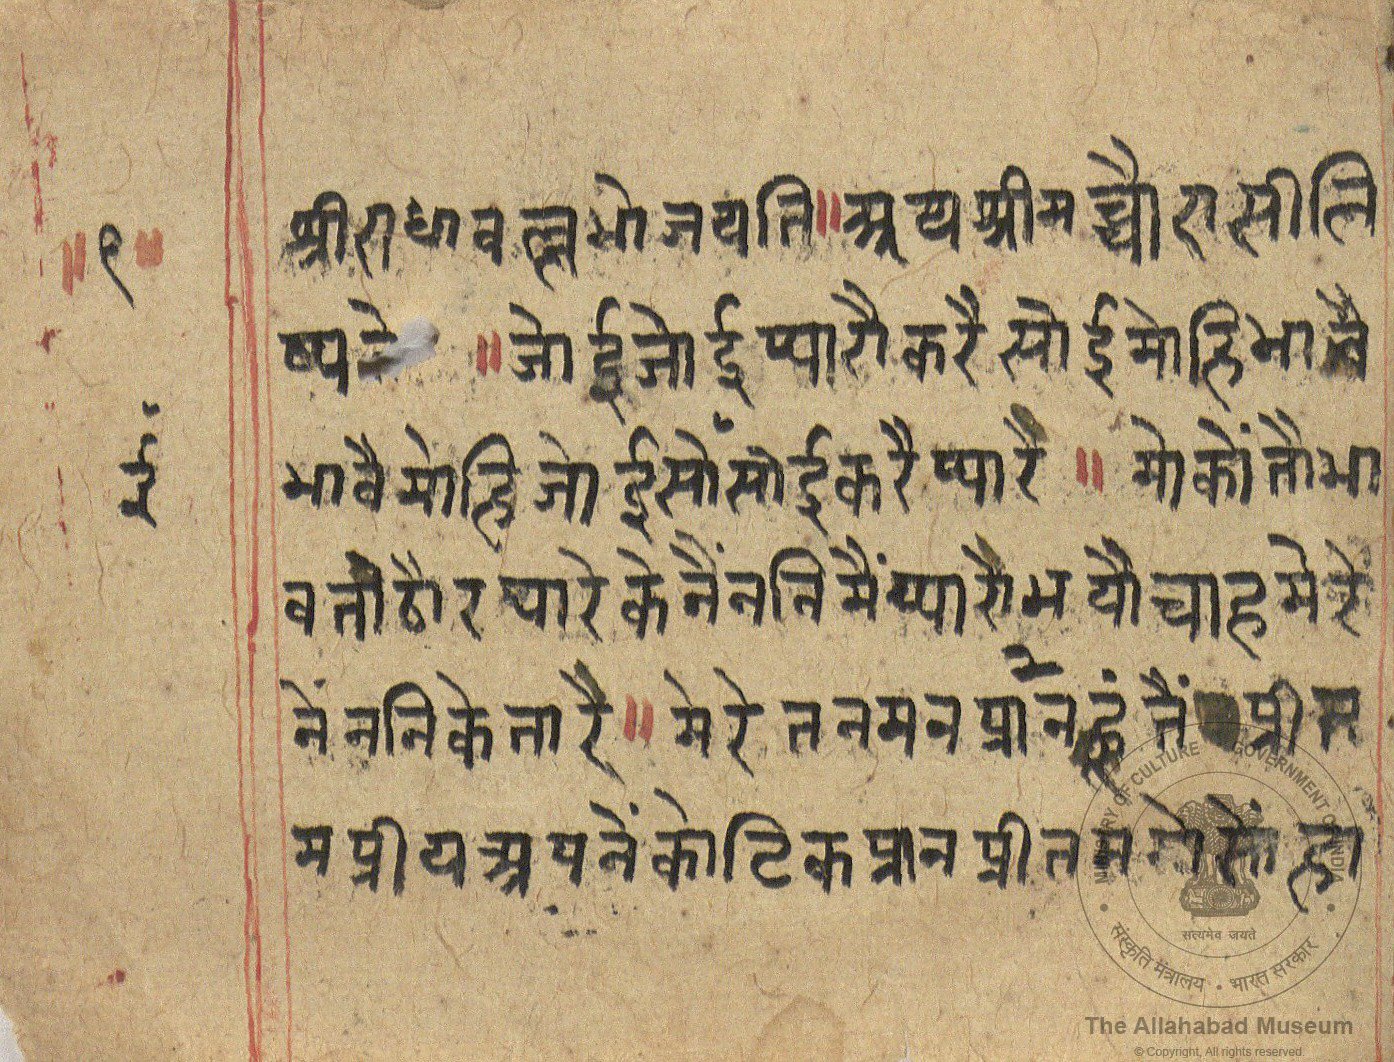 ॥१॥
ई
श्रीराधावल्लभो जयति॥अथ श्रीमच्चौरासी लि
ष्यते ॥जोई जोई प्यारौ करै सोई मोहि भावै
भावै मोहि जोई सोंसोई करै प्यारे ॥ मोकों तौ भा
वतौ ठौर प्यारे के नैंननि मैं प्यारौ भयौ चाह मेरे
नैंननि के तारै॥मेरे तनमन प्रांनहुं तैं प्रीत
म प्रीय अपनें कोटिक प्रान प्रीतम मोसों हा
MINISTRY OF CULTURE GOVERNMENT OF INDIA
सत्यमेव जयते
संस्कृति मंत्रालय • भारत सरकार
The Allahabad Museum
© Copyright, All rights reserved